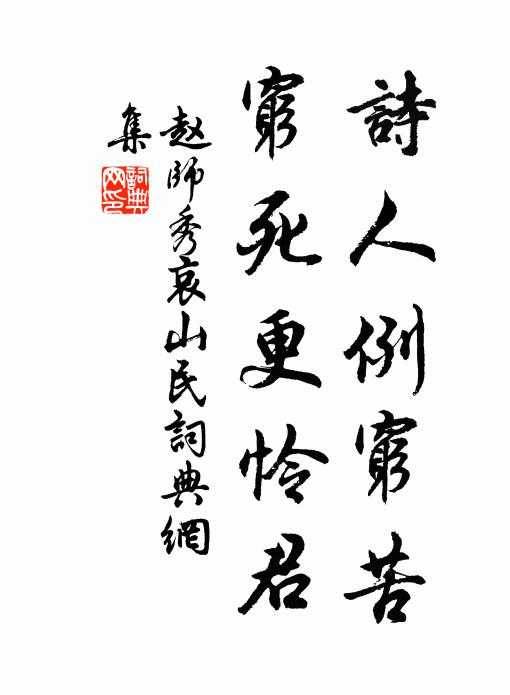 詩人例窮苦
窮死更怜君
赵師秀哀山民詞典網
集
詞典网印